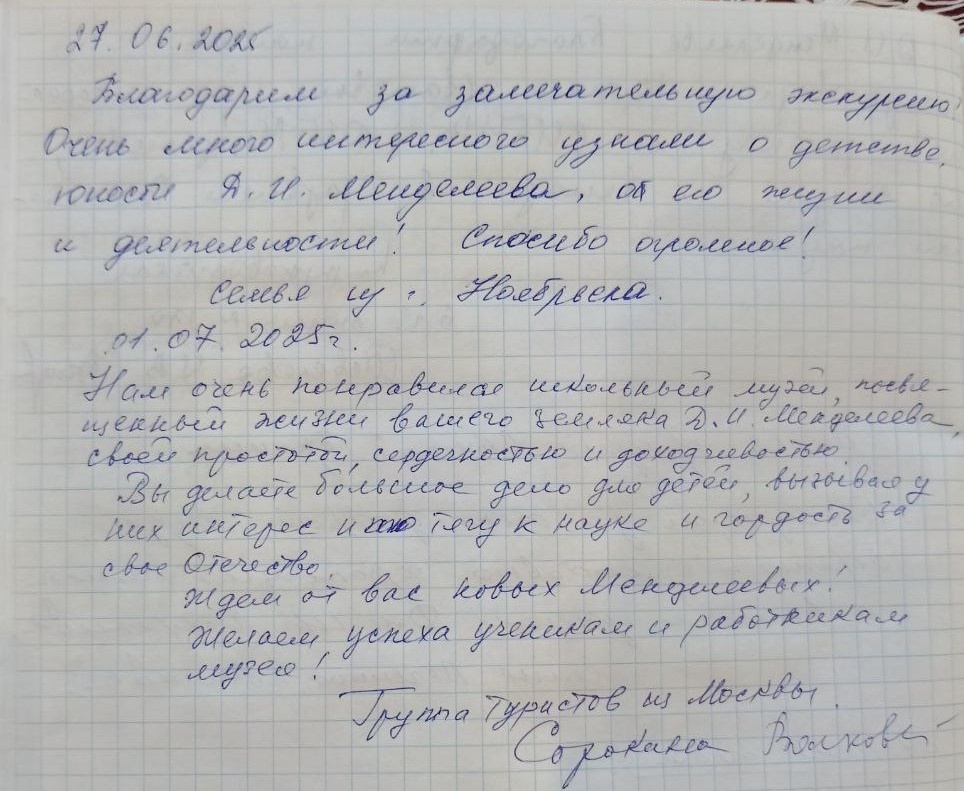 27.06.2025
Благодарим за замечательную экскурсию.
Очень много интересного узнали о детстве,
юности Д.И. Менделеева, об его жизни
и деятельности! Спасибо огромное!
Семья из г. Ноябрьска.
01.07.2025г.
Нам очень понравился школьный музей, посвя-
щенный жизни вашего земляка Д.И. Менделеева,
своей простотой, сердечностью и доходчивостью.
Вы делаете большое дело для детей, вызывая у
них интерес и тягу к науке и гордость за
свое Отечество.
Ждем от вас новых Менделеевых!
Желаем успеха ученикам и работникам
музея!
Группа туристов из Москвы
Сорокина